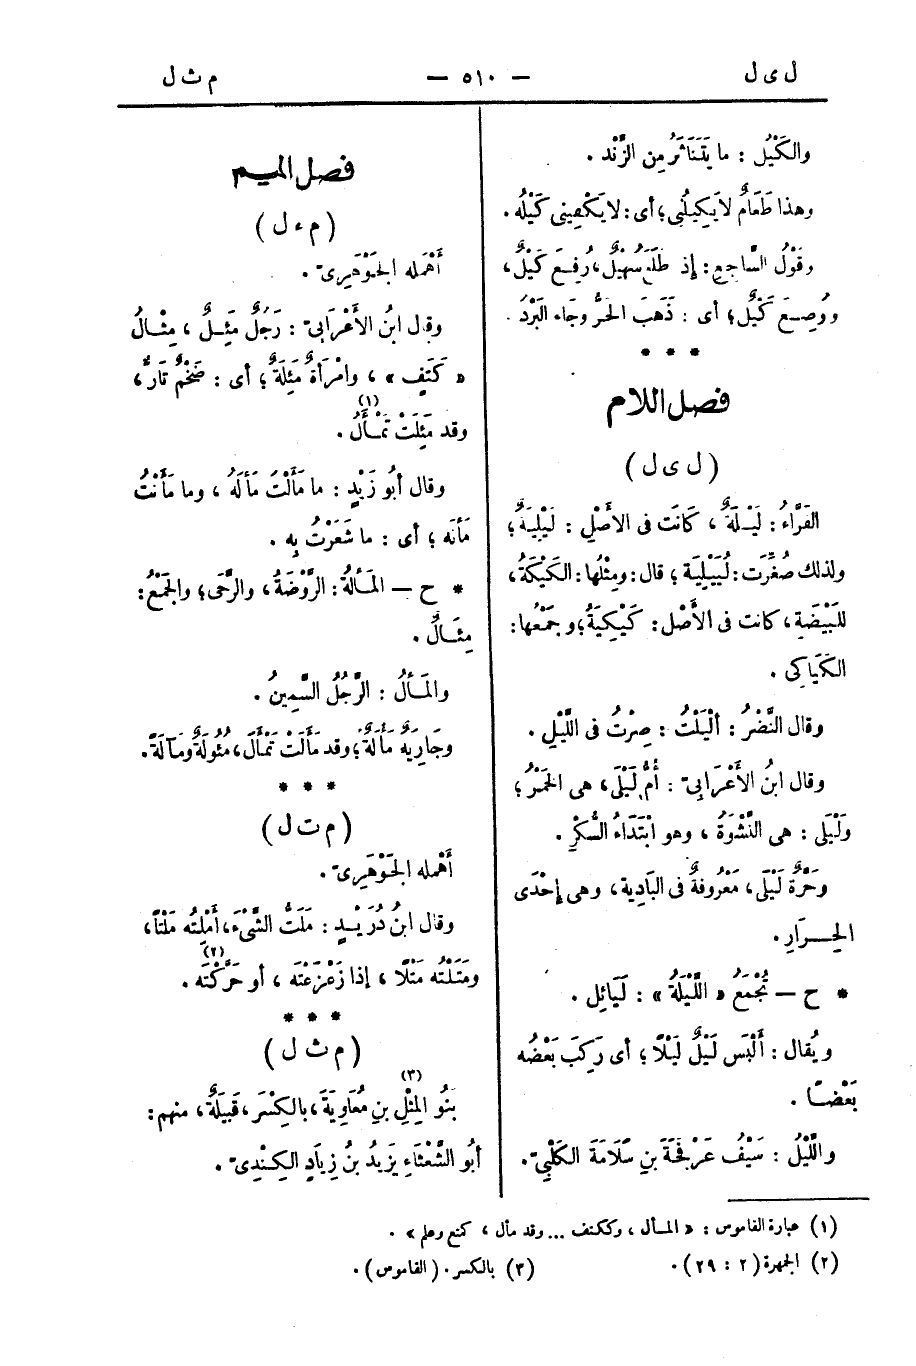 ل ى ل — ٥١٠ — م ث ل
والكَيْلُ : ما يَتَنَاثَرُ مِن الزَّنْد .
وهذا طَعَامٌ لا يَكِيلُنِى ؛ أى : لا يَكْفِينِى كَيْلُه .
وقَوْلُ السَّاجِعِ : إذ طَلَع سُهَيْلٌ ، رُفِعَ كَيْلٌ ،
ووُضِعَ كَيْلٌ ؛ أى : ذَهَبَ الحَرُّ وجَاء البَرْدُ .
* * *
فصل اللام
( ل ى ل )
الفَرَّاءُ : لَيْلَةٌ ، كَانَت فى الأَصْلِ : لَيْلِيَةٌ ؛
ولذلك صُغِّرَت : لُيَيْلِيَة ؛ قال : ومِثْلُها : الكَيْكَةُ ،
للبَيْضَةِ ، كانت فى الأَصْل : كَيْكِيَةٌ ؛ وجَمْعُها :
الكَيَاكِى .
وقال النَّضْرُ : أَلْيَلْتُ : صِرْتُ فى اللَّيْلِ .
وقال ابنُ الأَعْرَابِىّ : أُمُّ لَيْلَى ، هى الخَمْرُ ؛
ولَيْلَى : هى النَّشْوَةُ ، وهو ابْتِدَاءُ السُّكْرِ .
وحَرَّةُ لَيْلَى ، مَعْروفةٌ فى البَادِية ، وهى إحْدَى
الحِــرَارِ .
* ح — تُجْمَعُ « اللَّيْلَةُ » : لَيَائِل .
ويُقال : أَلْبَس لَيْلٌ لَيْلًا ؛ أى رَكِبَ بَعْضُه
بَعْضًا .
واللَّيْلُ : سَيْفُ عَرْفَجَةَ بنِ سَلَامَةَ الكَلْبِىّ .
فصل الميم
( م ء ل )
أَهْمَله الجَوْهَرِىّ .
وقال ابنُ الأَعْرَابِىّ : رَجُلٌ مَئِلٌ ، مِثَالُ
« كَتِفٍ » ، وامْرَأَةٌ مَئِلَةٌ ؛ أى : ضَخْمٌ تَارٌّ ،
وقد مَئِلَتْ تَمْأَلُ (١) .
وقال أبُو زَيْدٍ : ما مَأَلْتُ مَأْلَهُ ، وما مَأَنْتُ
مَأْنَه ؛ أى : ما شَعَرْتُ بِه .
* ح — المَأْلةُ : الرَّوْضَةُ ، والرَّحَى ؛ والجَمْعُ :
مِئَالٌ .
والمَأْلُ : الرَّجُلُ السَّمِينُ .
وجَارِيَةٌ مَأْلَةٌ ؛ وقد مَأَلَتْ تَمْأَلُ ، مُئُولَةً ومَآلَةً .
* * *
( م ت ل )
أَهْمله الجَوْهَرِىّ .
وقال ابنُ دُرَيْــدٍ : مَلَتُّ الشَّىْءَ ، أَمْلِتُه مَلْتًا ،
ومَتَلْتُه مَتْلًا ، إذا زَعْزَعْتَه ، أو حَرَّكْتَه (٢) .
* * *
( م ث ل )
بَنُو المِثْلِ (٣) بنِ مُعَاوِيَةَ ، بالكِسْرِ ، قَبِيلَةٌ ، منهم :
أبُو الشَّعْثَاءِ يَزِيدُ بنُ زِيَادٍ الكِنْدِىّ .
(١) عبارة القاموس : « المـأل ، وككتف ... وقد مأل ، كمنع وعلم » .
(٢) الجمهرة (٢ : ٢٩) . (٣) بالكسر . (القاموس) .